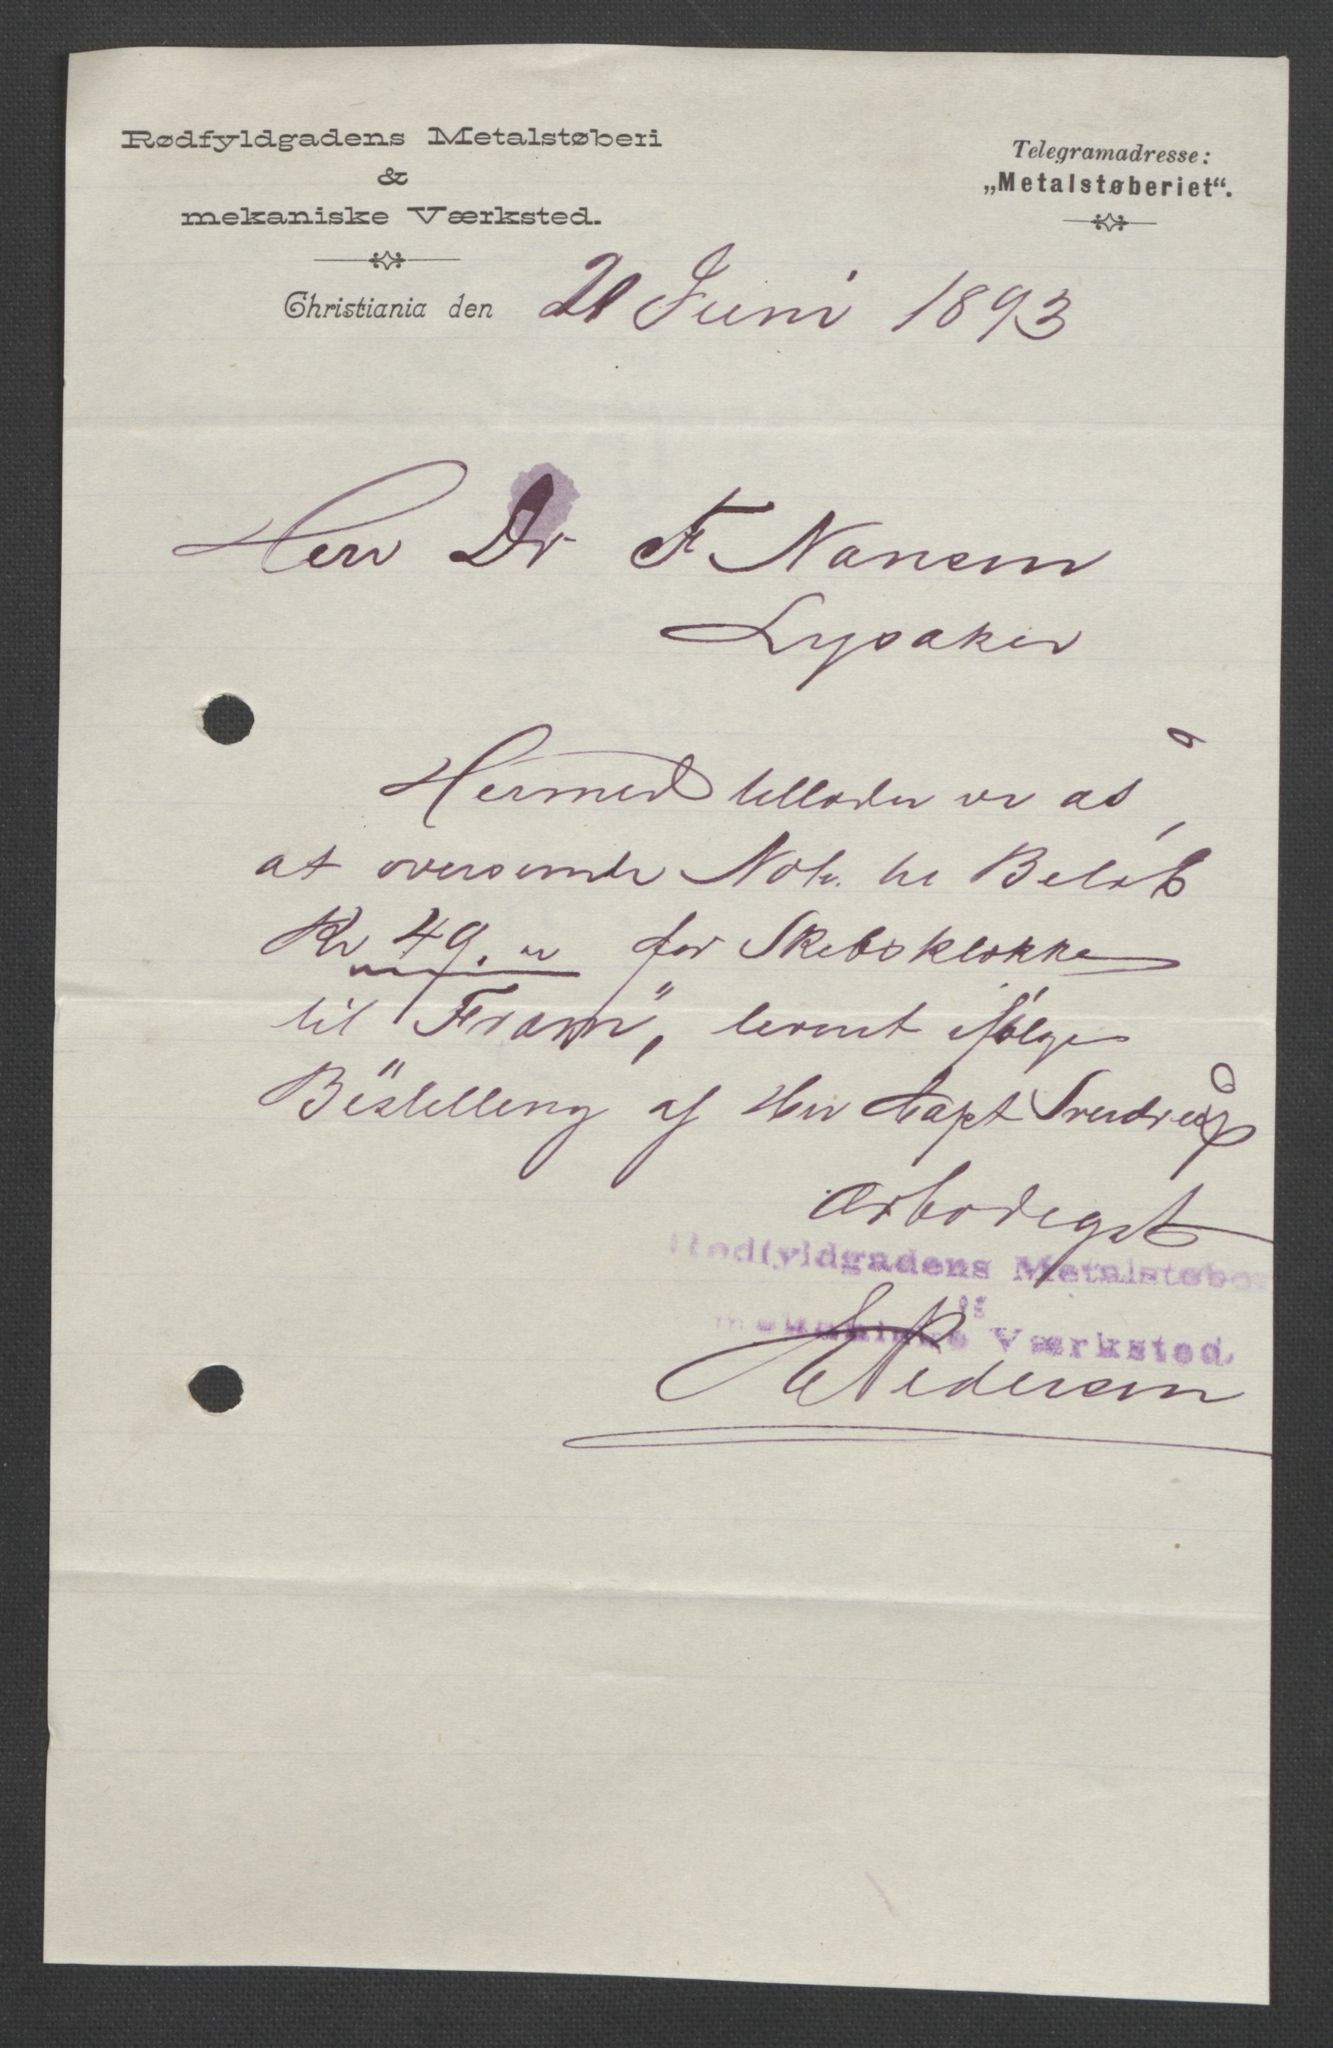 Rødfyldgadens Metalstøberi
&
mekaniske Værksted.
Telegramadresse:
„Metalstøberiet“.
Christiania den 21 Juni 1893
Herr Dr F. Nansen
Lysaker
Hermed tillader vi os,
at oversende Nota til Beløb
Kr 49. " for Skibsklokke
til "Fram", leveret ifølge
Bestilling af Herr Capt Sverdrup
Ærbødigst
Rødfyldgadens Metalstøberi
og
mekaniske Værksted.
Pedersen